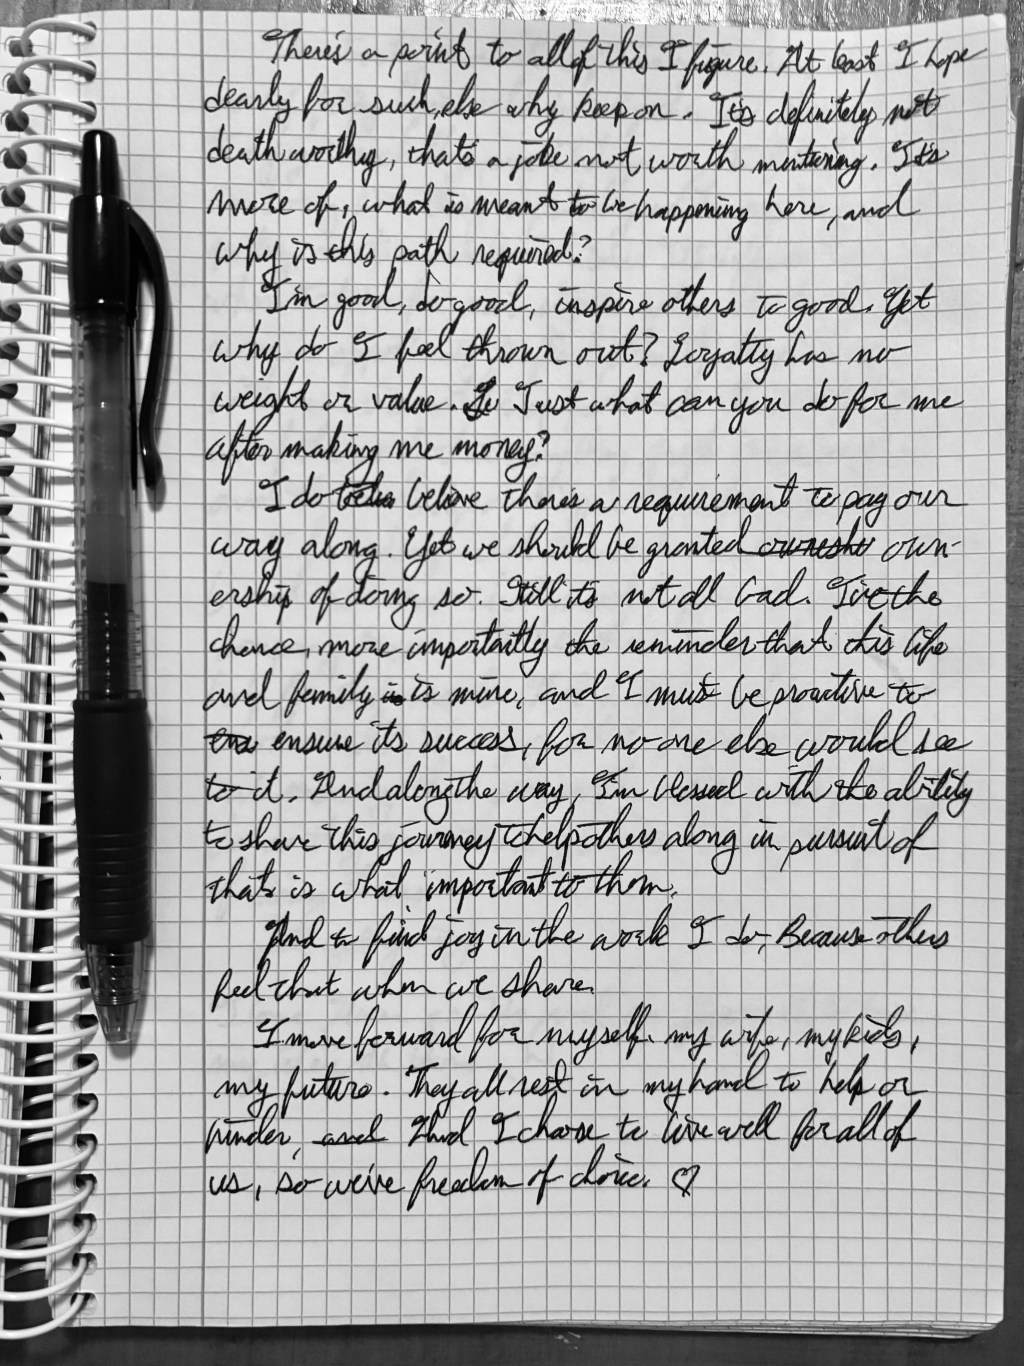 There's a point to all of this I figure. At least I hope
dearly for such, else why keep on. It's definitely not
death worthy, that's a joke not worth mentioning. It's
more of, what is meant to be happening here, and
why is this path required?
I'm good, do good, inspire others to good. Yet
why do I feel thrown out? Loyalty has no
weight or value. Just what can you do for me
after making me money?
I do believe there's a requirement to pay our
way along. Yet we should be granted owneshi own-
ership of doing so. Still it's not all bad. I've the
chance, more importantly the reminder that this life
and family is is mine, and I must be proactive to
ens ensure its success, for no one else would see
to it. And along the way, I'm blessed with the ability
to share this journey to help others along in pursuit of
that's is what important to them.
And to find joy in the work I do, Because others
feel that when we share.
I move forward for myself. my wife, my kids,
my future. They all rest in my hand to help or
hinder, and And I choose to live well for all of
us, so we've freedom of choice. ♡